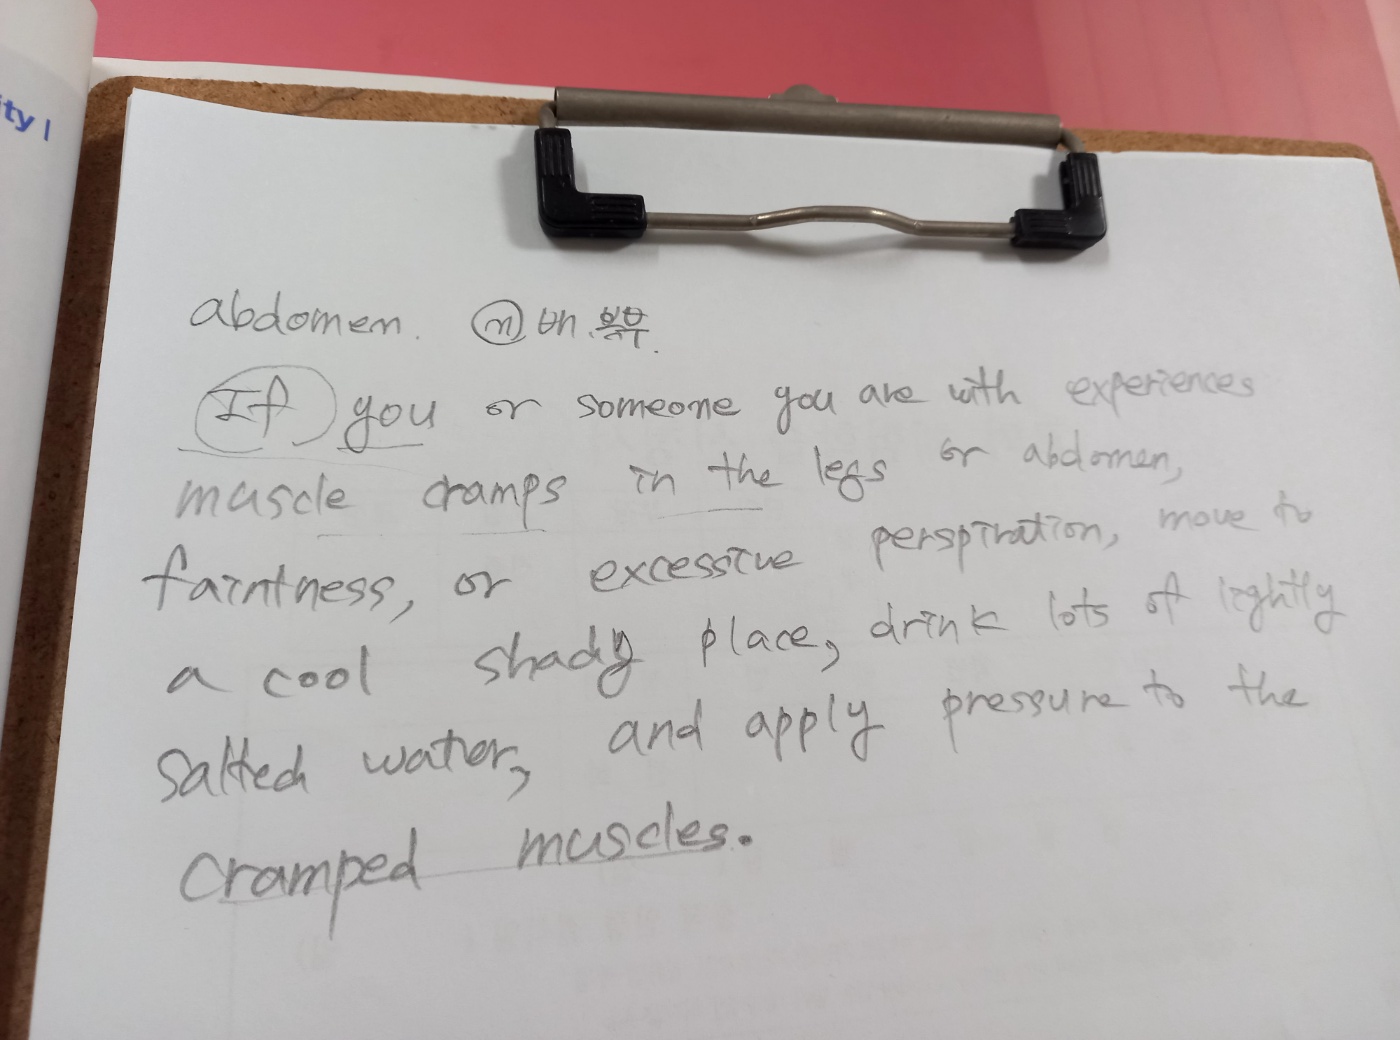 ity |
abdomen. ⓝ 배.복부.
If you or someone you are with experiences
muscle cramps in the legs or abdomen,
faintness, or excessive perspiration, move to
a cool shady place, drink lots of lightly
salted water, and apply pressure to the
cramped muscles.